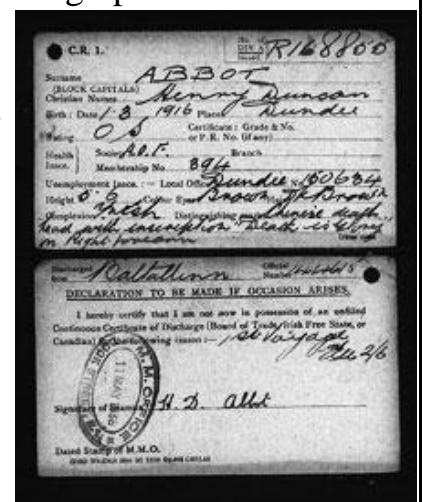 C.R. 1.
No. of
DIS A
Issued
R168800
Surname ABBOT
(BLOCK CAPITALS)
Christian Names Henny Duncan
Birth: Date 1·3 1916 Place Dundee
Rating O S Certificate: Grade & No.
or P.R. No. (if any)
Health Society A.O.F. Branch
Insce. Membership No. 394
Unemployment Insce. :— Local Office Dundee
Height 5' 6 Colour Eyes Brown Brown
Complexion Fresh Distinguishing death
head with inscription Death is Glory
on Right forearm
Discharged
from Baltallinn Official
Number
DECLARATION TO BE MADE IF OCCASION ARISES.
I hereby certify that I am not now in possession of an unfilled
Continuous Certificate of Discharge (Board of Trade, Irish Free State, or
Canadian) for the following reason :— 1st Voyage
Fee 2/6
M.M. OFFICE
11 MAY
DOCK STREET
Signature of Seaman H. D. Abbot
Dated Stamp of M.M.O.